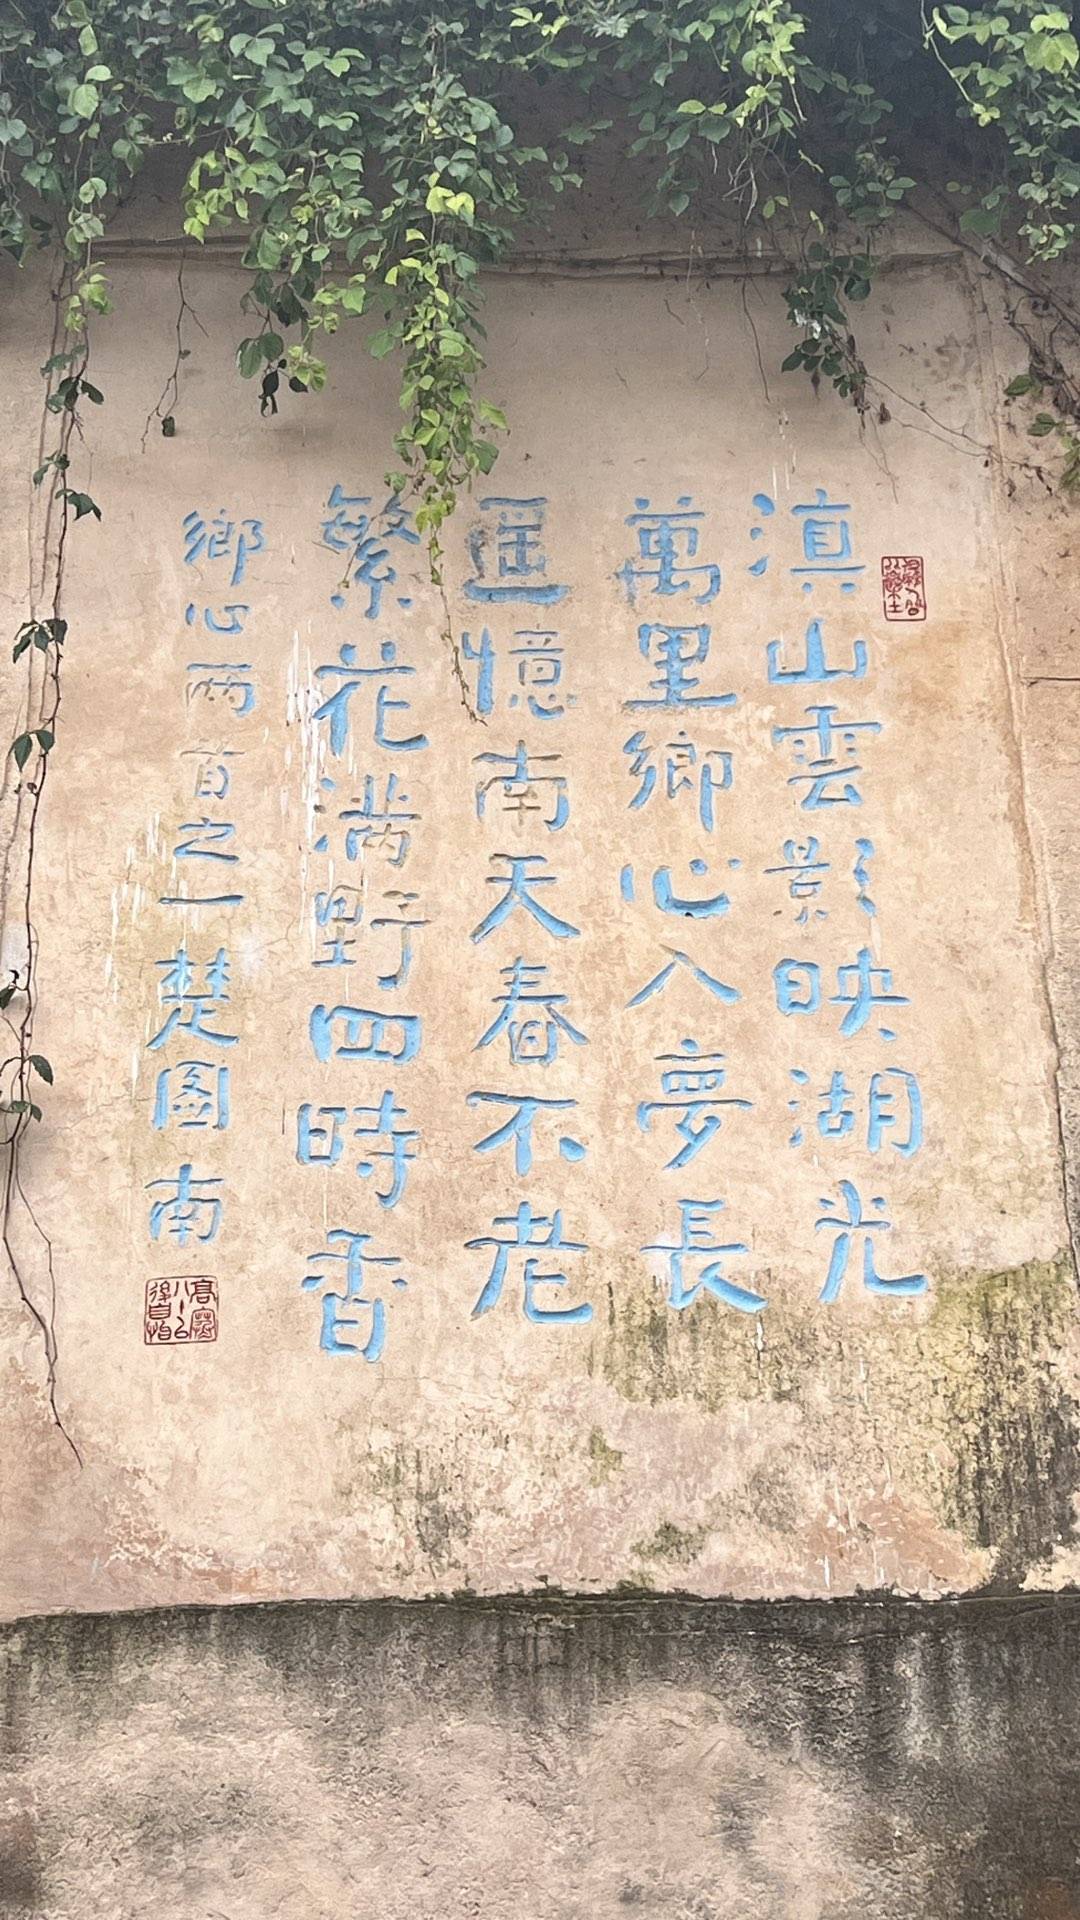 滇山雲影映湖光
萬里鄉心入夢長
遥憶南天春不老
繁花满野四時香
鄉心兩首之一 楚图南